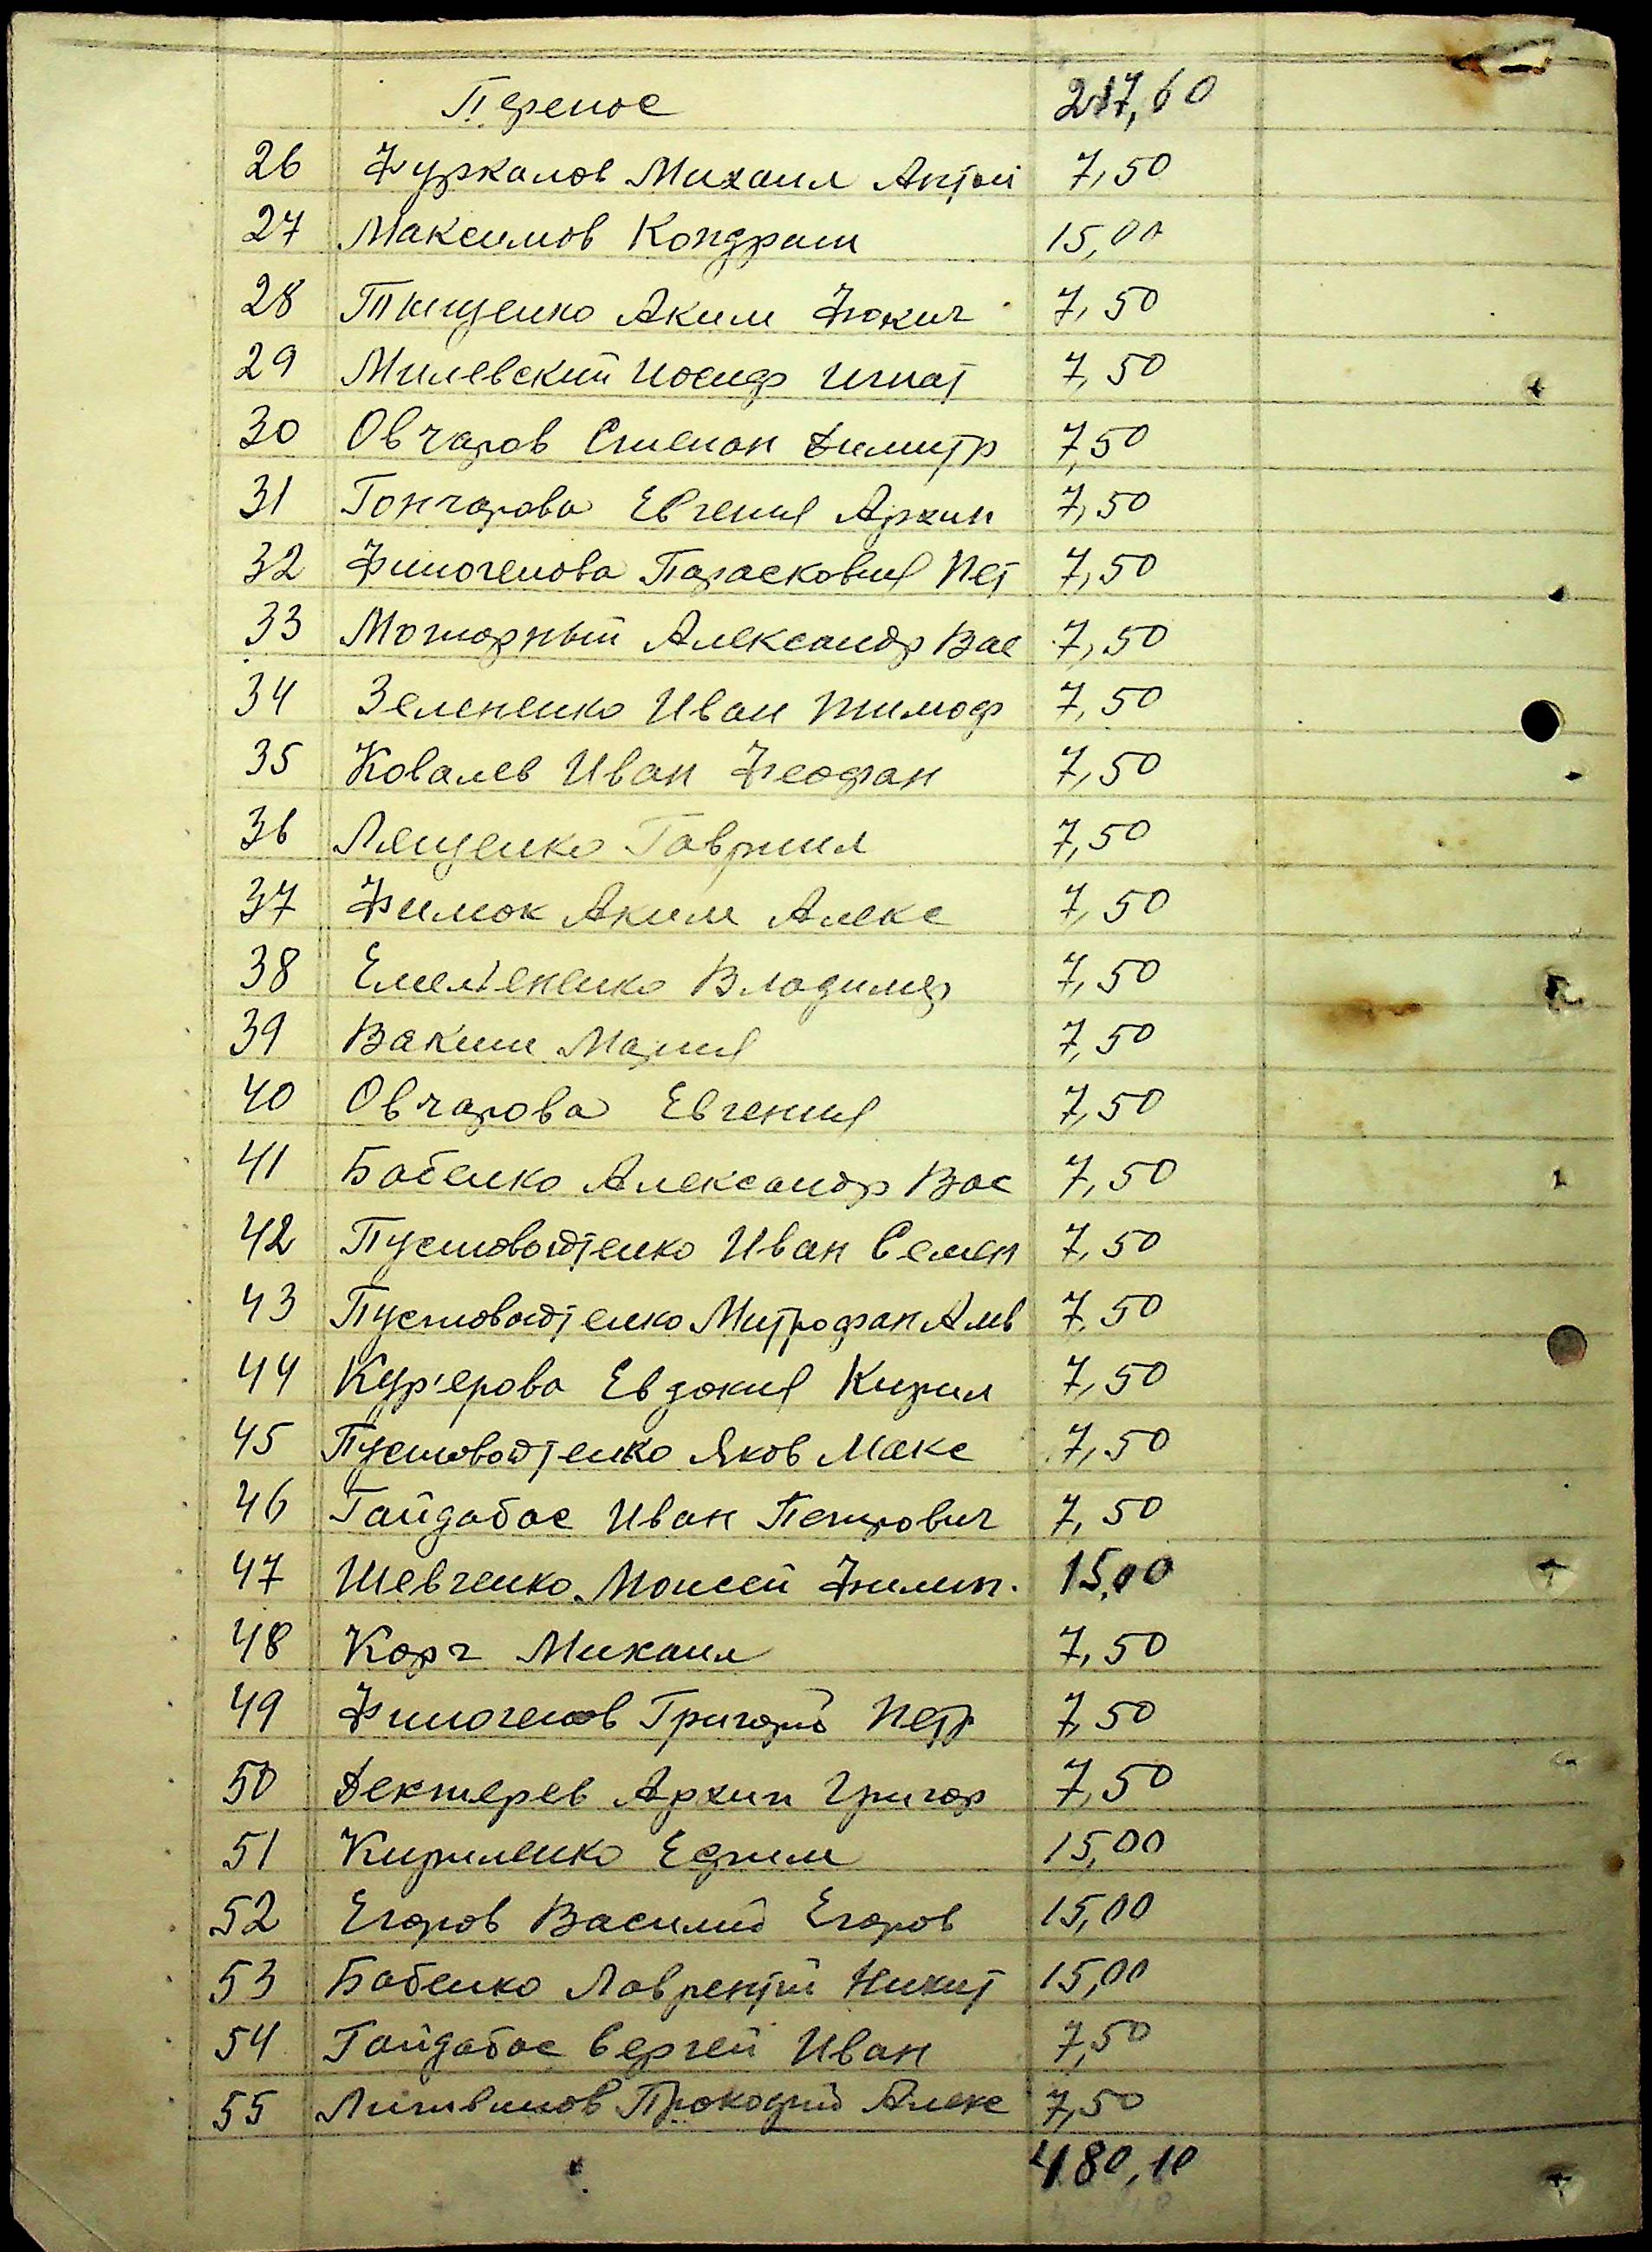 Перенос 217,60
26 Фуркалов Михаил Антон 7,50
27 Максимов Кондрат 15,00
28 Тищенко Аким Фокич 7,50
29 Милевский Иосиф Игнат 7,50
30 Овчаров Степан Димитр 7,50
31 Гончарова Евгения Архип 7,50
32 Финогенова Парасковия Пет 7,50
33 Моторный Александр Вас 7,50
34 Зелененко Иван Тимоф 7,50
35 Ковалев Иван Феофан 7,50
36 Лященко Гавриил 7,50
37 Фимок Аким Алекс 7,50
38 Емел'ененко Владимир 7,50
39 Вакит Мария 7,50
40 Овчарова Евгения 7,50
41 Бабенко Александр Вас 7,50
42 Пустовойтенко Иван Семен 7,50
43 Пустовойтенко Митрофан 7,50
44 Кур'ерова Евдокия Кирил 7,50
45 Пустовойтенко Яков Макс 7,50
46 Гайдабас Иван Петрович 7,50
47 Шевченко Моисей Филип. 15,00
48 Корч Михаил 7,50
49 Финогенов Григорий Петр 7,50
50 Дектерев Архип Григор 7,50
51 Кириленко Ефим 15,00
52 Егоров Василий Егоров 15,00
53 Бабенко Лаврентий Никит 15,00
54 Гайдабас Сергей Иван 7,50
55 Литвинов Прокофий Алекс 7,50
480,10